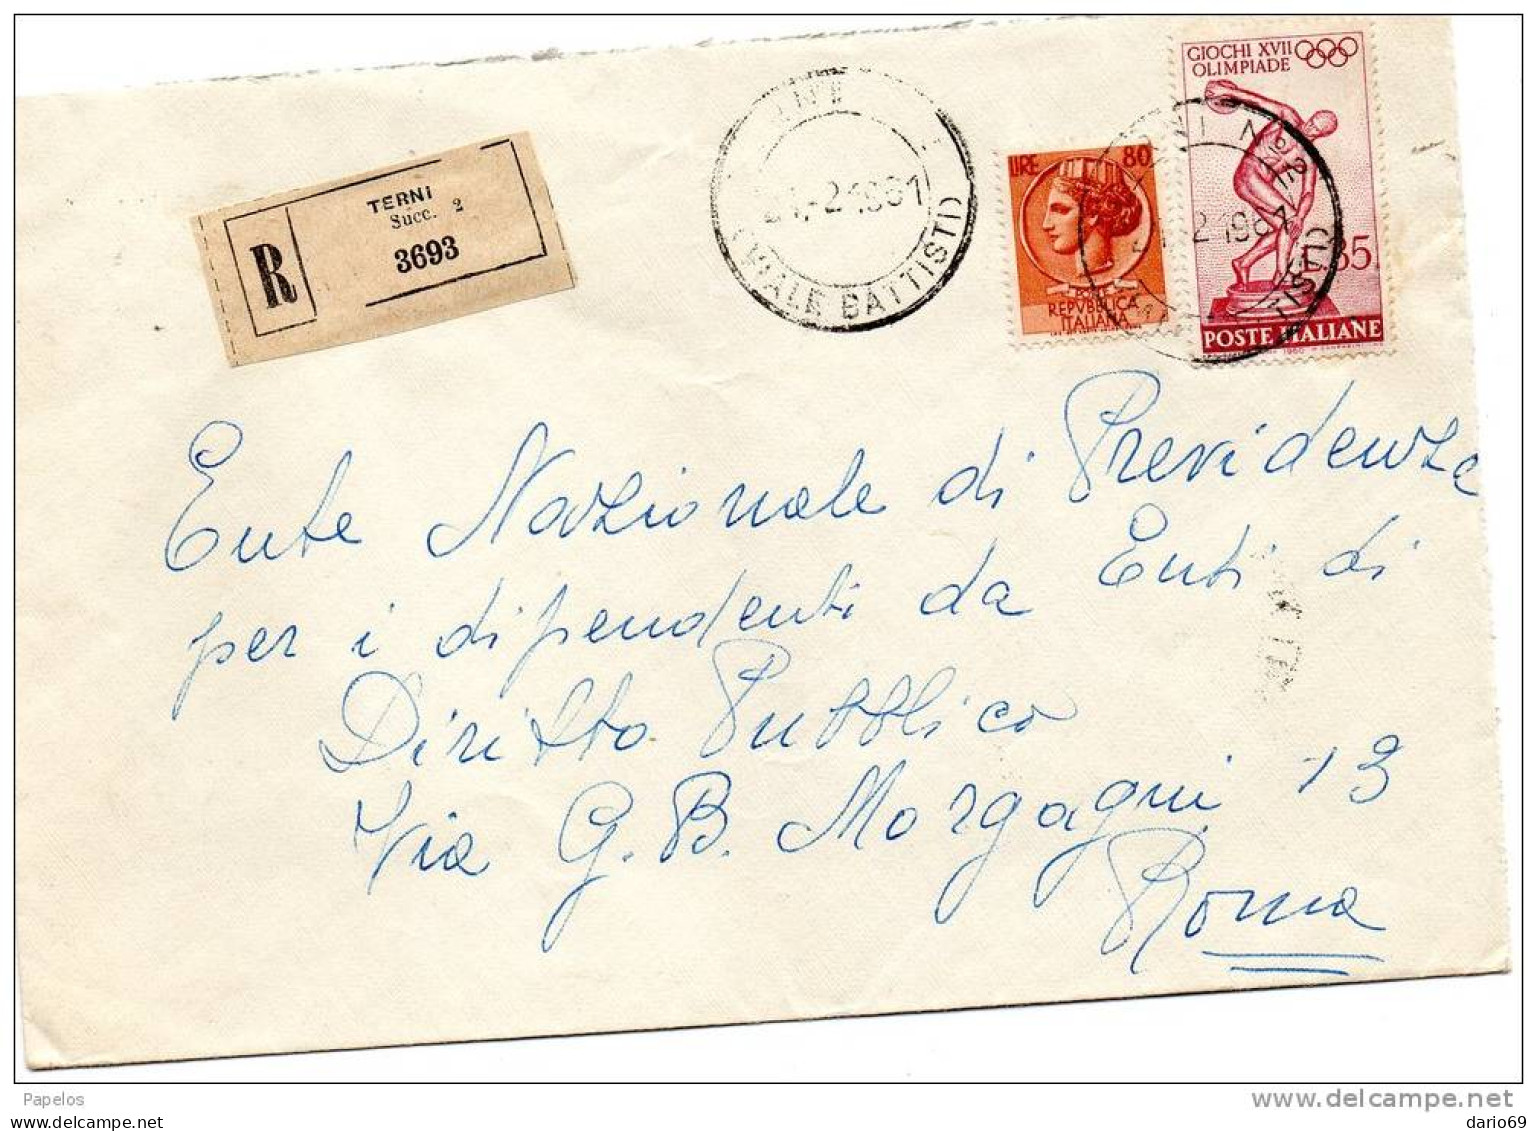 GIOCHI XVII
OLIMPIADE
LIRE 80
TERNI
Succ. 2
R
3693
2.1961
(VIALE BATTISTI)
N°2
2 1961
L.35
REPVBBLICA
ITALIANA
POSTE ITALIANE
1960
Ente Nazionale di Previdenza
per i dipendenti da Enti di
Diritto Pubblico
Via G. B. Morgagni 13
Roma
Papelos
www.delcampe.net
© www.delcampe.net
dario69